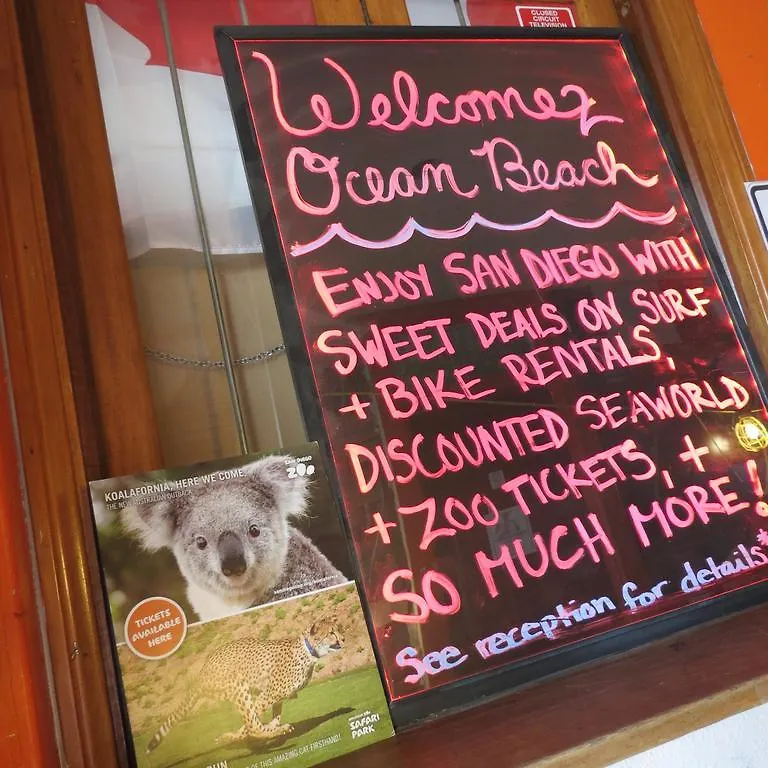 CLOSED
CIRCUIT
TELEVISION
Welcome 2
Ocean Beach
ENJOY SAN DIEGO WITH
SWEET DEALS ON SURF
+ BIKE RENTALS,
DISCOUNTED SEAWORLD
+ ZOO TICKETS, +
SO MUCH MORE!
See reception for details*
KOALAFORNIA, HERE WE COME.
THE NEW AUSTRALIAN OUTBACK
SAN DIEGO
ZOO
TICKETS
AVAILABLE
HERE
SAFARI
PARK
OF THIS AMAZING CAT FIRSTHAND!